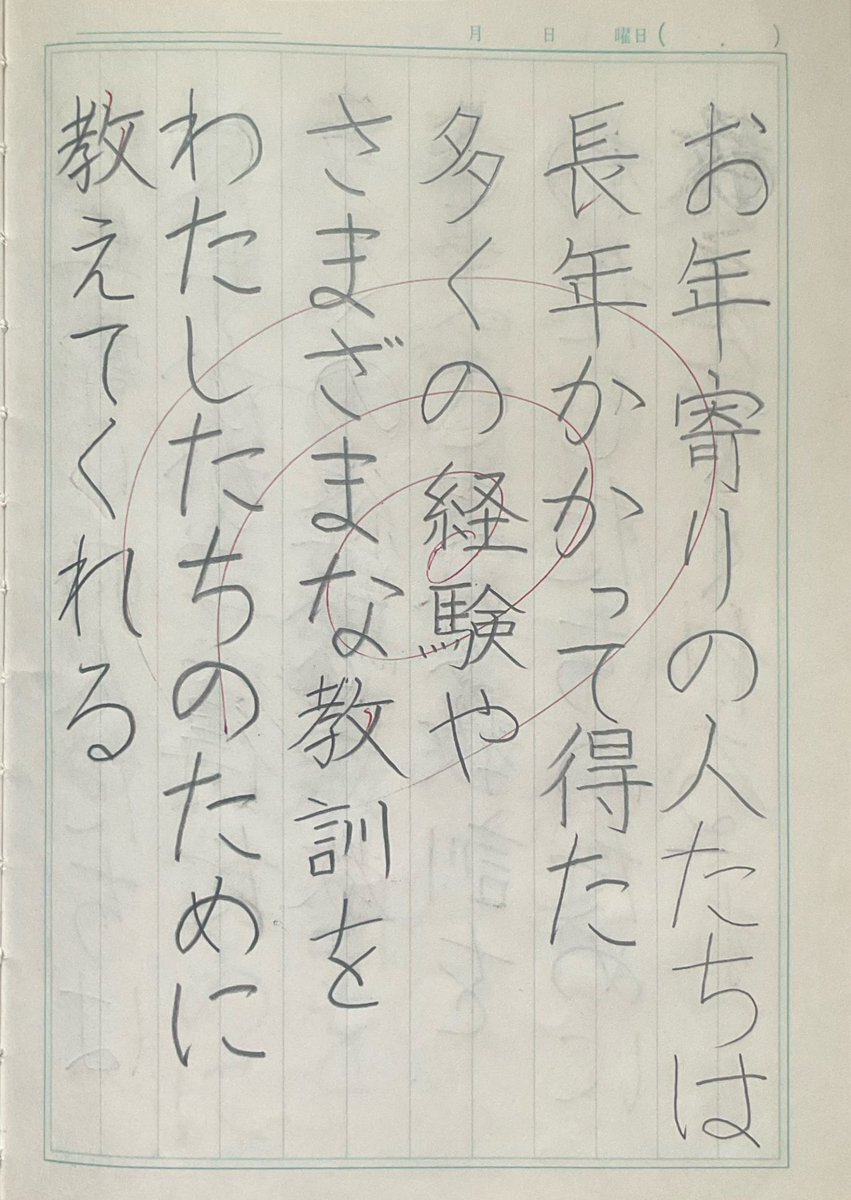 月 日 曜日( . )
お年寄りの人たちは
長年かかって得た
多くの経験や
さまざまな教訓を
わたしたちのために
教えてくれる